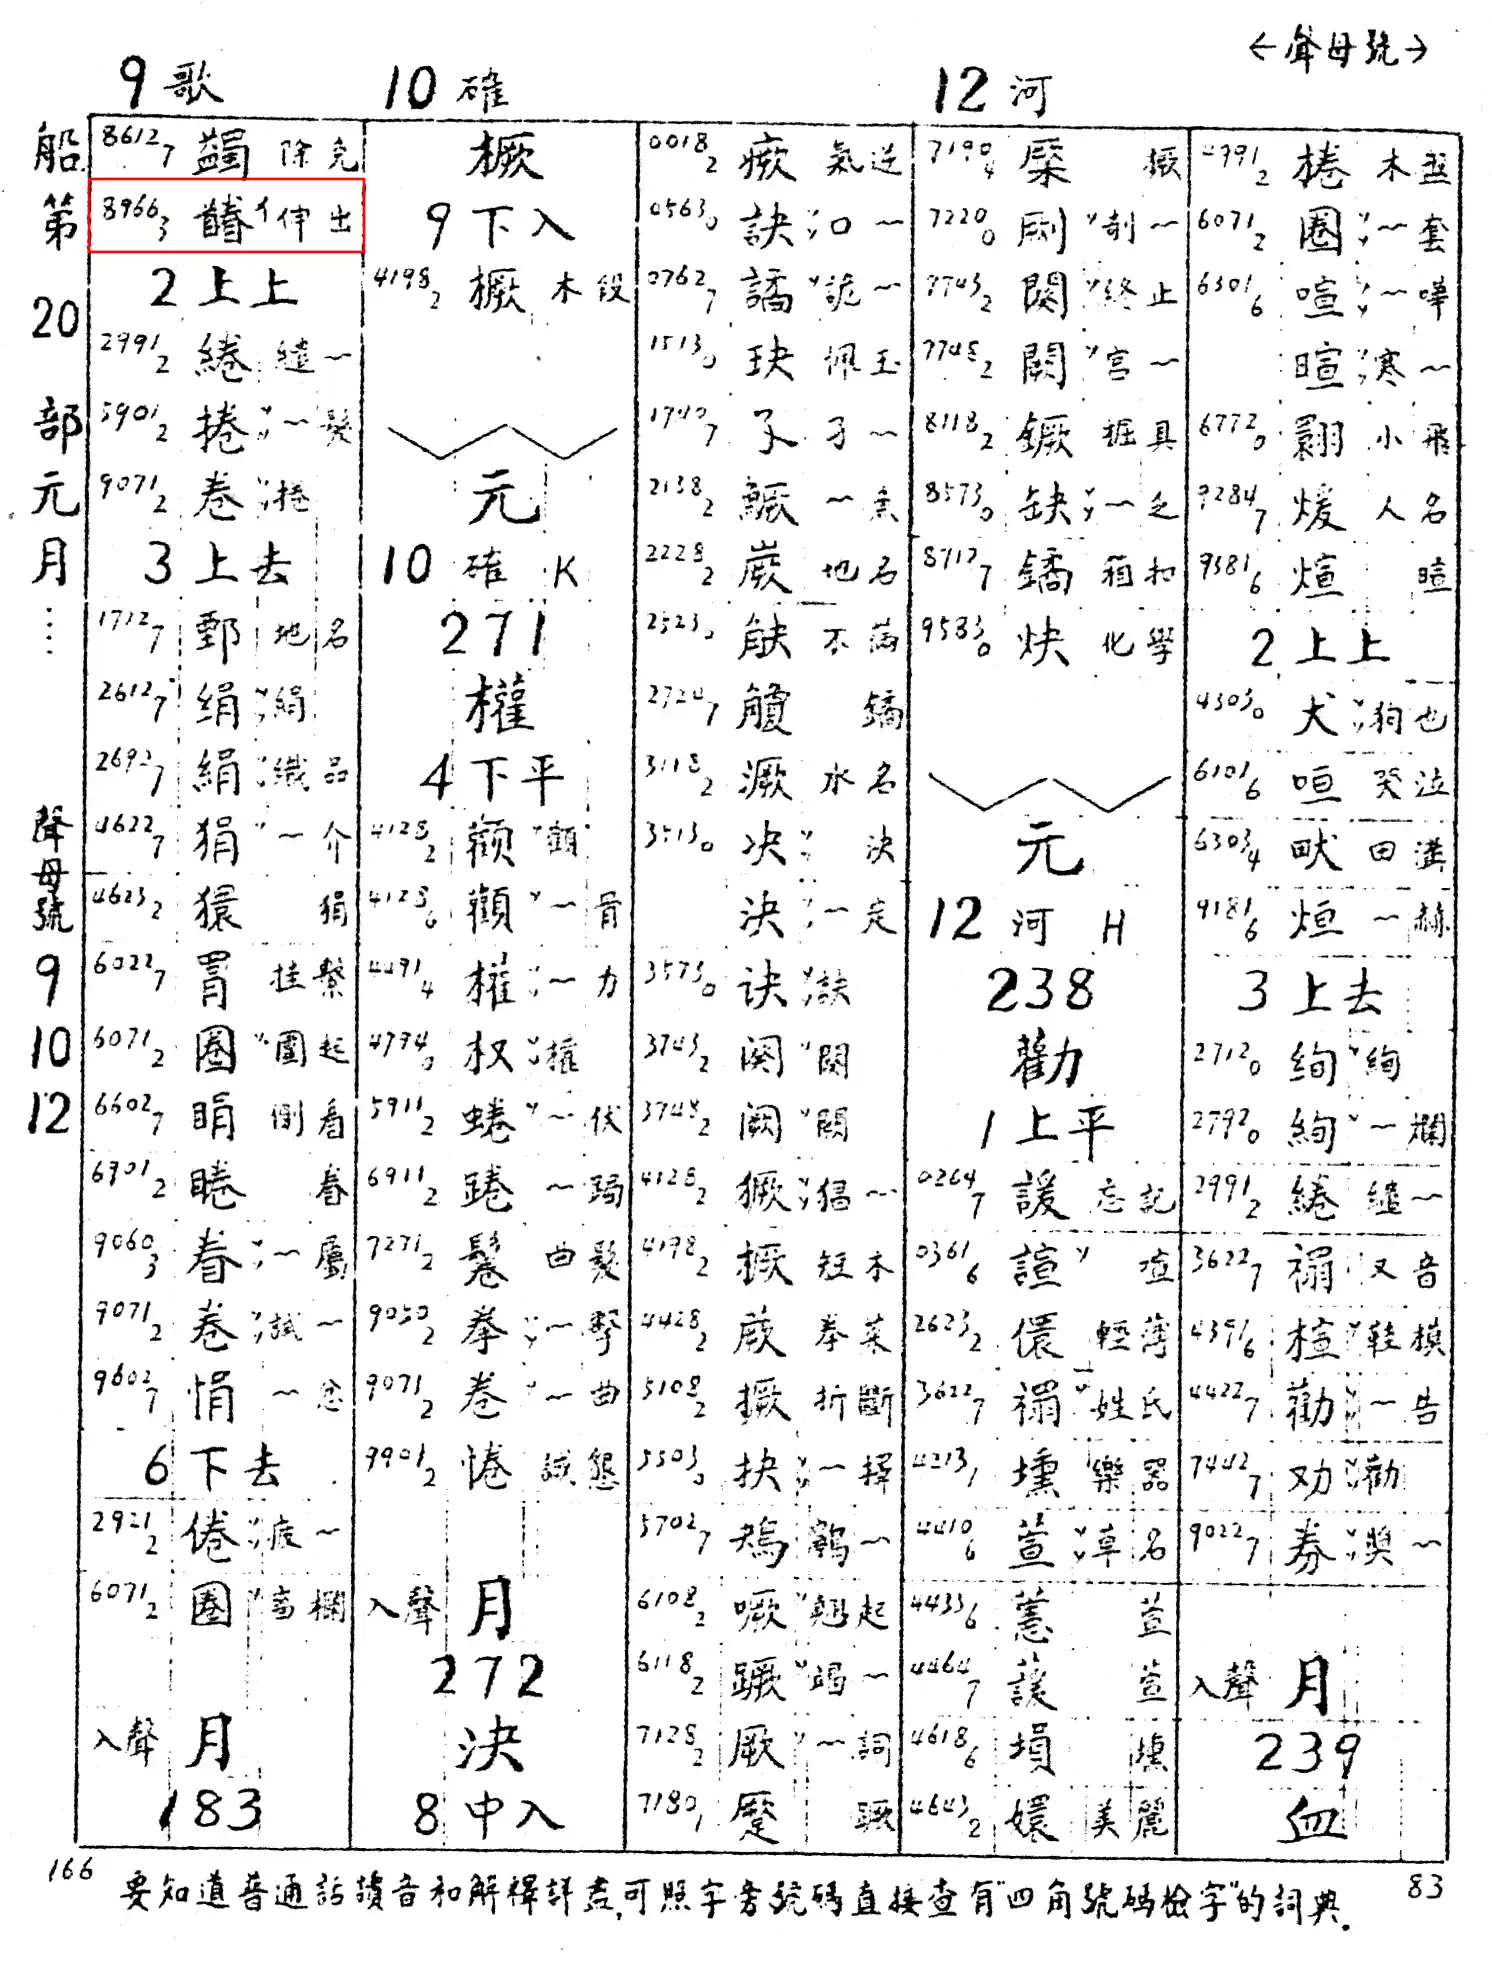 ←聲母號→
9歌
10確
12河
船第20部元月……
聲母號
9
10
12
86127 蠲 除免
89663 伸出
2上上
29912 綣 繾～
59012 捲 ～髮
90712 卷 捲
3上去
17127 鄄 地名
26127 绢 絹
26927 絹 織品
46227 狷 ～介
46232 獧 狷
60227 罥 挂繫
60712 圈 圍起
66027 睊 側看
69012 睠 眷
90603 眷 ～屬
90712 卷 試～
96027 悁 ～忿
6下去
29212 倦 疲～
60712 圈 畜欄
入聲 月
183
橛
9下入
41982 橛 木段
元
10確K
271
權
4下平
41282 颧 顴
41280 顴 ～骨
44914 權 ～力
47940 权 權
59112 蜷 ～伏
69112 踡 ～跼
72712 鬈 曲髮
90502 拳 ～擊
90712 卷 ～曲
99012 惓 誠懇
入聲 月
272
決
8中入
00182 瘚 氣逆
05630 訣 口～
07627 譎 詭～
15130 玦 佩玉
17407 孑 孑～
21382 鱖 ～魚
22282 嶡 地名
25230 觖 不滿
27247 觼 鐍
31182 灍 水名
35130 决 決
決 ～定
35730 诀 訣
37432 阕 闋
37482 阙 闕
41282 獗 猖～
41982 橛 短木
44282 蕨 拳菜
51082 撅 折斷
55030 抉 ～擇
57027 鴂 鶗～
61082 噘 翹起
61182 蹶 竭～
71282 厥 ～詞
71801 蹷 蹶
71904 橜 橛
72200 劂 剞～
77432 闋 終止
77482 闕 宮～
81182 鐝 掘具
85730 缺 ～乏
87127 鐍 箱扣
95830 炔 化學
元
12河H
238
勸
1上平
02647 諼 忘記
03616 諠 喧
26232 儇 輕薄
36227 禤 姓氏
42131 壎 樂器
44106 萱 草名
44336 蕙 萱
44647 蘐 萱
46186 塤 壎
46432 嬛 美麗
47912 棬 木盤
60712 圈 ～套
63016 喧 ～嘩
暄 寒～
67720 翾 小飛
92847 煖 人名
93816 煊 暄
2上上
43030 犬 狗也
61016 咺 哭泣
63034 畎 田溝
91816 烜 ～赫
3上去
27120 绚 絢
27920 絢 ～爛
29912 綣 繾～
36227 禤 又音
43916 楦 鞋模
44227 勸 ～告
74427 劝 勸
90227 券 獎～
入聲 月
239
血
166 要知道普通話讀音和解釋詳盡,可照字旁號碼直接查有"四角號碼檢字"的詞典. 83